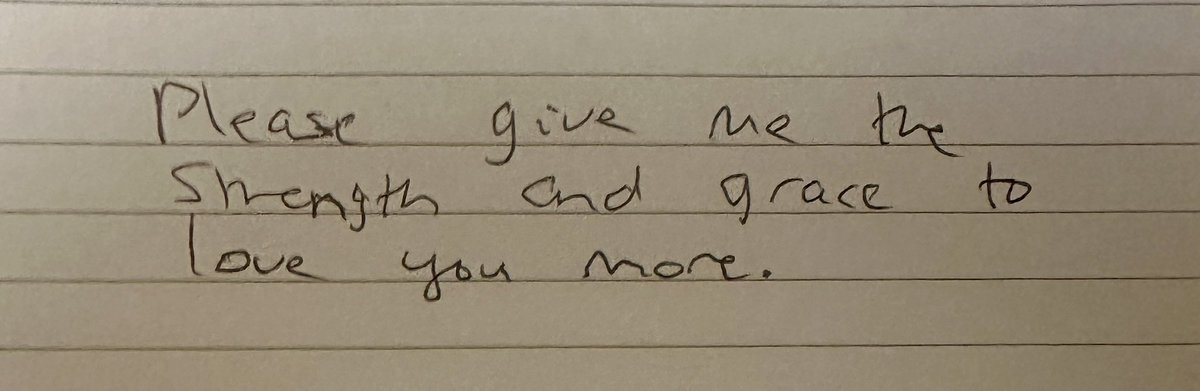 Please give me the
Strength and grace to
love you more.